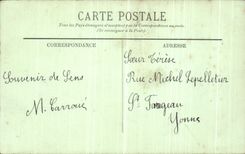 CARTE POSTALE
Tous les Pays étrangers n'acceptent pas la Correspondance au recto.
(Se renseigner à la Poste)
CORRESPONDANCE
ADRESSE
Souvenir de Sens
M. Carroué
Sœur Thérèse
Rue Michel Lepelletier
St Fargeau
Yonne